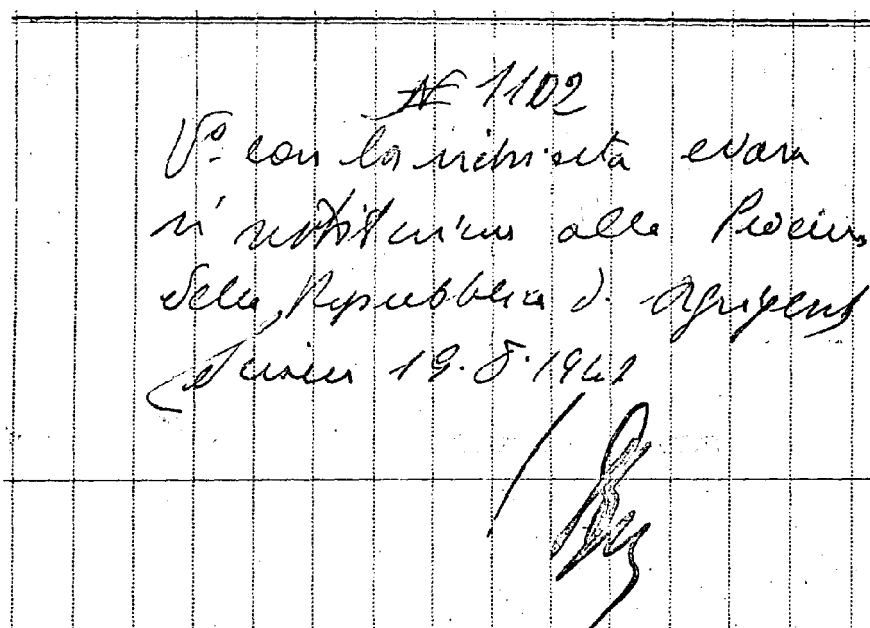 N 1102
Vº con la richiesta evasa
si restituisce alla Procura
della Repubblica di Agrigento
19.8.196